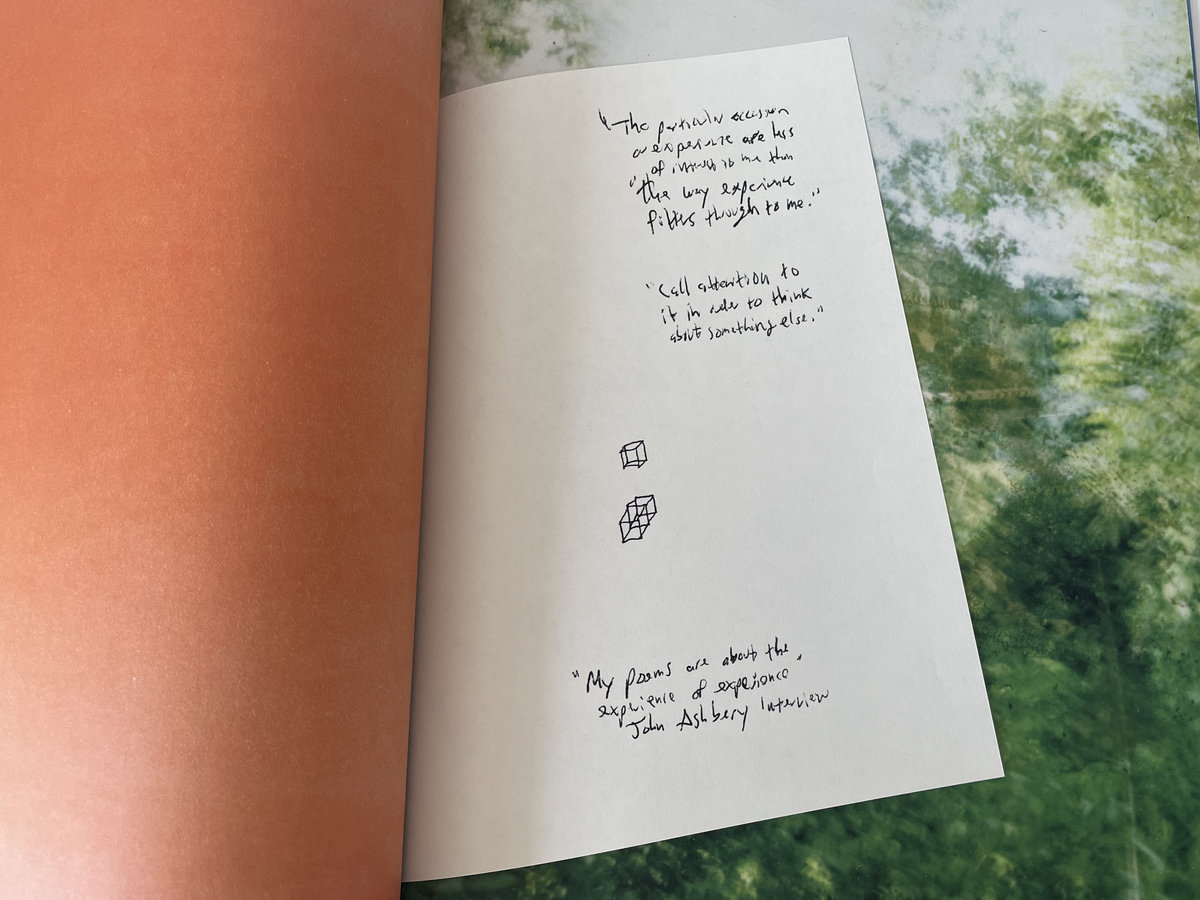 "The particular occasion
or experience are less
of interest to me than
"the way experience
filters through to me."
"Call attention to
it in order to think
about something else."
"My poems are about the
experience of experience"
John Ashbery Interview